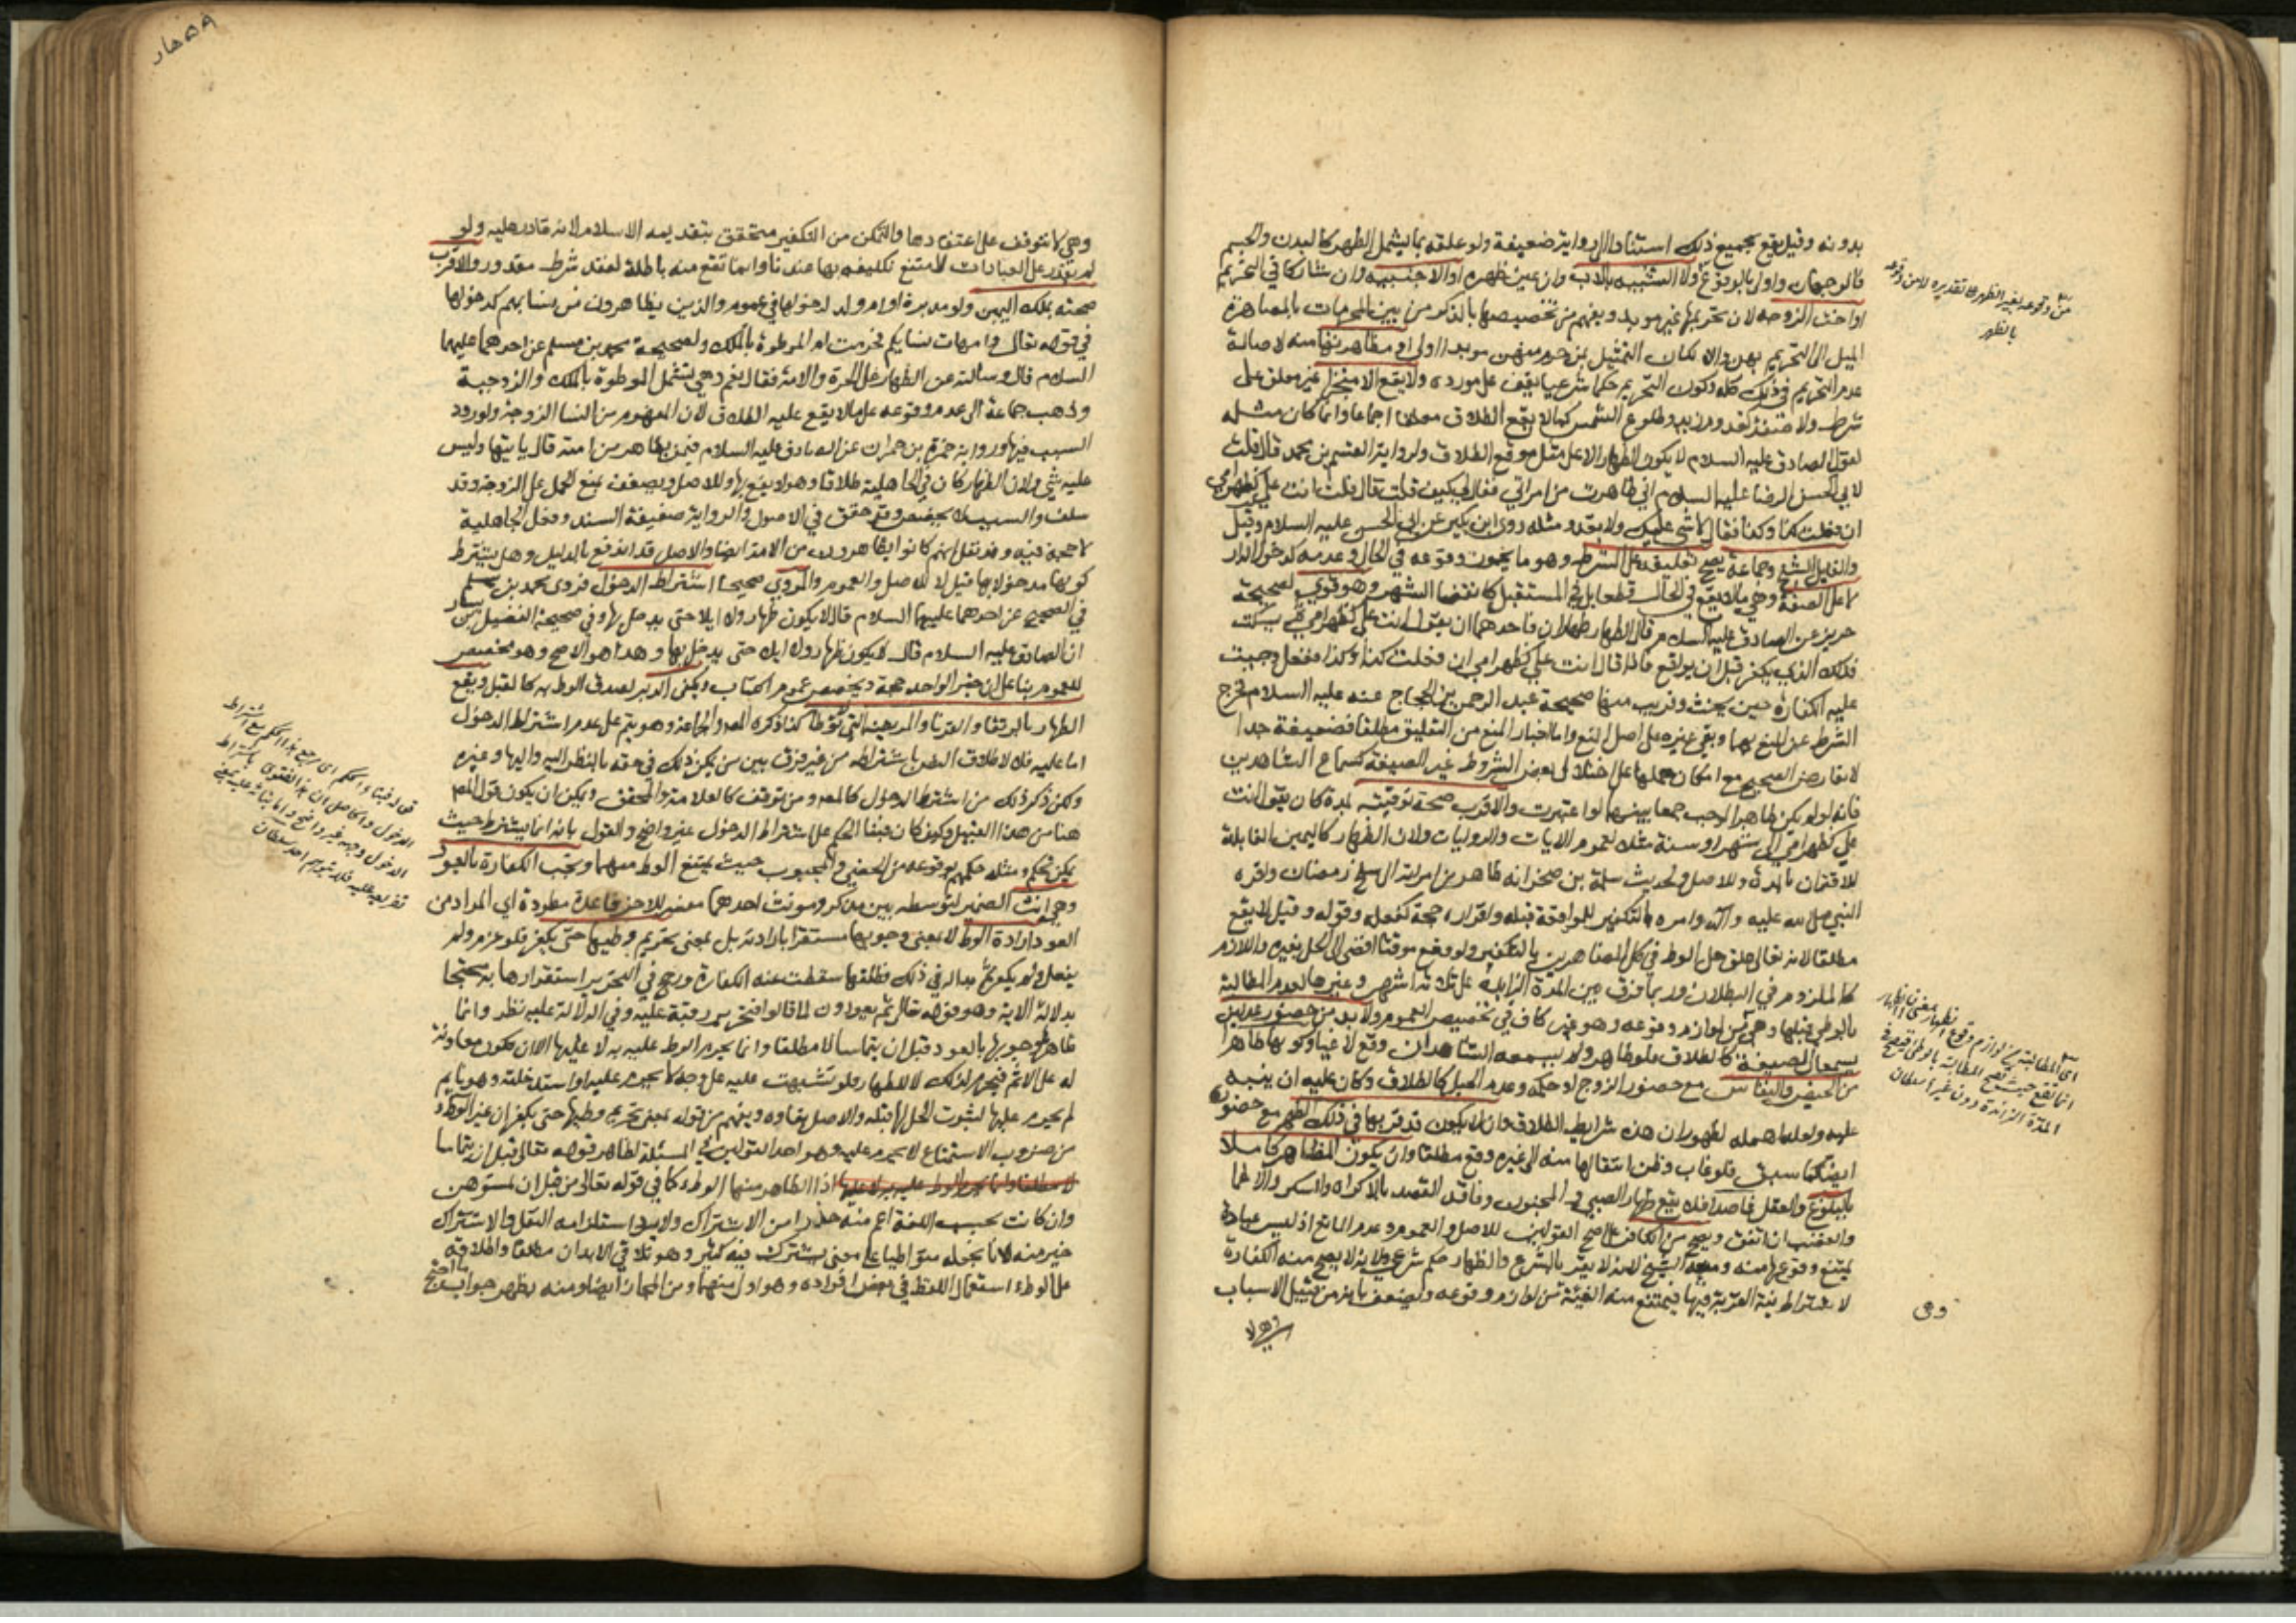 بدونه وقيل يقع بجميع ذلك استنادا الى رواية ضعيفة ولو علقه بما يشمل الظهر كالبدن والجسم
فالوجهان واولى بالوقوع ولا التشبيه بالاب وان عين ظهره او الاجنبية وان شاركا في التحريم
او اخت الزوجة لان تحريمها غير مؤبد ويفهم من تخصيصها بالذكر من بين المحرمات بالمصاهرة
الميل الى التحريم بهن والا لكان التمثيل بمن حرم منهن مؤبدا اولى او مظاهرتها منه لاصالة
عدم التحريم في ذلك كله وكون التحريم حكما شرعيا يقف على مورده ولا يقع الا منجزا غير معلق على
شرط ولا صفة كقدوم زيد وطلوع الشمس كما لا يقع الطلاق معلقا اجماعا وانما كان مثله
لقول الصادق عليه السلام لا يكون الظهار الا على مثل موقع الطلاق ولرواية القسم بن محمد قال قلت
لابي الحسن الرضا عليه السلام اني ظاهرت من امراتي فقال لي كيف قلت قال قلت انت علي كظهر امي
ان فعلت كذا وكذا فقال لا شي عليك ولا تعد ومثله روى ابن بكير عن ابي الحسن عليه السلام وقيل
والقايل الشيخ وجماعة يصح تعليقه على الشرط وهو ما يجوز وقوعه في الحال وعدمه كدخول الدار
لا على الصفة وهي ما لا يقع في الحال قطعا بل في المستقبل كانقضا الشهر وهو قوي لصحيحة
حريز عن الصادق عليه السلام قال الظهار ظهاران فاحدهما ان يقول انت علي كظهر امي ثم يسكت
فذلك الذي يكفر قبل ان يواقع فاذا قال انت علي كظهر امي ان فعلت كذا وكذا ففعل وجبت
عليه الكفارة حين يحنث وقريب منها صحيحة عبد الرحمن بن الحجاج عنه عليه السلام فخرج
الشرط عن المنع بهما وبقي غيره على اصل المنع واما اخبار المنع من التعليق مطلقا فضعيفة جدا
لا تعارض الصحيح مع امكان حملها على اختلال بعض الشروط غير الصيغة كسماع الشاهدين
فانه لو لم يكن ظاهرا لوجب جمعا بينهما لو اعتبرت والاقرب صحة توقيته بمدة كان يقول انت
علي كظهر امي الى شهر او سنة مثلا لعموم الايات والروايات ولان الظهار كاليمين القابلة
للاقتران بالمدة وللاصل ولحديث سلمة بن صخر انه ظاهر من امراته الى سلخ رمضان واقره
النبي صلى الله عليه وآله وامره بالتكفير للمواقعة قبله واقراره حجة كفعله وقوله وقيل لا يقع
مطلقا لانه تعالى علق حل الوطء في كل المظاهرين بالتكفير ولو وقع موقتا افضى الى الحل بغيره واللازم
كالملزوم في البطلان وربما فرق بين المدة الزايدة على ثلاثة اشهر وغيرها لعدم المطالبة
بالوطء قبلها وهي من لوازم وقوعه وهو غير كاف في تخصيص العموم ولا بد من حضور عدلين
يسمعان الصيغة كالطلاق فلو ظاهر ولم يسمعه الشاهدان وقع لاغيا وكونها طاهرا
من الحيض والنفاس مع حضور الزوج او حكمه وعدم الحبل كالطلاق وكان عليه ان ينبه
عليه ولعله اهمله لظهور ان هذه شرايط الطلاق وان لا يكون قد قربها في ذلك الطهر مع حضوره
ايضا كما سبق فلو غاب وظن انتقالها منه الى غيره وقع مطلقا وان يكون المظاهر كاملا
بالبلوغ والعقل قاصدا فلا يقع ظهار الصبي والمجنون وفاقد القصد بالاكراه والسكر والاغما
والغضب ان اتفق ويصح من الكافر على اصح القولين للاصل والعموم وعدم المانع اذ ليس عبادة
يمتنع وقوعها منه ومنعه الشيخ لانه لا يقر بالشرع والظهار حكم شرعي ولانه لا يصح منه الكفارة
لاشتراط نية القربة فيها فيمتنع منه الفئة من لوازم وقوعه ويضعف بانه من قبيل الاسباب
وهي لا
من وقوعه بغير الظهر لا تقديره لا من وقوعه
بالظهر
اي المطالبة من لوازم وقوع الظهار
انما تقع حيث تصح المطالبة بالوطء فيقع في
المدة الزائدة دون غيرها سلطان
وهي لا تتوقف على اعتقادها والتمكن من التكفير متحقق بتقديمه الاسلام لانه قادر عليه ولو
لم يقدر على العبادات لامتنع تكليفه بها عندنا وانما تقع منه باطلة لفقد شرط مقدور والاقرب
صحته بملك اليمين ولو مدبرة او ام ولد لدخولها في عموم والذين يظاهرون من نسايهم كدخولها
في قوله تعالى وامهات نسايكم فحرمت ام الموطوءة بالملك ولصحيحة محمد بن مسلم عن احدهما عليهما
السلام قال وسالته عن الظهار على الحرة والامة فقال نعم وهي تشمل الموطوة بالملك والزوجية
وذهب جماعة الى عدم وقوعه على ما لا يقع عليه الطلاق لان المفهوم من النسا الزوجة ولورود
السبب فيها ورواية حمزة بن حمران عن الصادق عليه السلام فيمن يظاهر من امته قال ياتيها وليس
عليه شي ولان الظهار كان في الجاهلية طلاقا وهو لا يقع بها وللاصل ويضعف بمنع الحمل على الزوجة وقد
سلف والسبب لا يخصص وقد حقق في الاصول والرواية ضعيفة السند وفعل الجاهلية
لا حجة فيه وقد نقل انهم كانوا يظاهرون من الامة ايضا والاصل قد اندفع بالدليل وهل يشترط
كونها مدخولا بها قيل لا للاصل والعموم والمروي صحيحا اشتراط الدخول فروى محمد بن مسلم
في الصحيح عن احدهما عليهما السلام قال لا يكون ظهار ولا ايلا حتى يدخل بها وفي صحيحة الفضيل بن يسار
ان الصادق عليه السلام قال لا يكون ظهار ولا ايلا حتى يدخل بها وهذا هو الاصح وهو مخصص
للعموم بنا على ان خبر الواحد حجة ويخصص عموم الكتاب ويكفي الدبر لصدق الوطء به كالقبل ويقع
الظهار بالرتقا والقرنا والمريضة التي لا توطا كذا ذكره المص والجماعة وهو يتم على عدم اشتراط الدخول
اما عليه فلا لاطلاق النص باشتراطه من غير فرق بين من يمكن ذلك في حقه بالنظر اليه واليها وغيره
ولكن ذكر ذلك من اشترط الدخول كالمص ومن توقف كالعلامة والمحقق ويمكن ان يكون قول المص
هنا من هذا القبيل وكيف كان فبنا الحكم على اشتراط الدخول غير واضح والقول بانه انما يشترط حيث
يمكن تحكم ومثله حكمهم بوقوعه من الخصي والمجبوب حيث يمتنع الوطء منهما وتجب الكفارة بالعود
وهي انث الضمير لتوسطه بين مذكر ومونث احدهما مفسر للاخر قاعدة مطردة اي المراد من
العود ارادة الوطء لا بمعنى وجوبها مستقرا بارادته بل بمعنى تحريم وطيها حتى يكفر فلو عزم ولم
يفعل ولم يكفر ثم بدا له في ذلك فطلقها سقطت عنه الكفارة ورجح في التحرير استقرارها به محتجا
بدلالة الاية وهو قوله تعالى ثم يعودون لما قالوا فتحرير رقبة عليه وفي الدلالة عليه نظر وانما
ظاهرها وجوبها بالعود قبل ان يتماسا لا مطلقا وانما يحرم الوطء عليه به لا عليها الا ان تكون معاونة
له على الاثم فيحرم لذلك لا للظهار فلو تشبهت عليه على وجه لا يحرم عليه او استدخلته وهو نايم
لم يحرم عليها لثبوت الحل لها قبله والاصل بقاوه ويفهم من قوله بمعنى تحريم وطيها حتى يكفر ان غير الوطء
من ضروب الاستمتاع لا يحرم عليه وهو احد القولين في المسئلة لظاهر قوله تعالى قبل ان يتماسا
لا مطلقا وانما يحرم الوطء عليه به لا عليها اذ الظاهر منها الوطء كما في قوله تعالى من قبل ان تمسوهن
وان كانت بحسب اللغة اعم منه حذرا من الاشتراك ولانه استلزامه النقل والاشتراك
خير منه لانا نجعله متواطيا على معنى يشترك فيه كثير وهو تلاقي الابدان مطلقا واطلاقه
على الوطء استعمال اللفظ في بعض افراده وهو اولى منهما ومن المجاز ايضا ومنه يظهر جواب ما احتج
قوله فبنا الحكم
الدخول
الدخول وجهه غير واضح
سلطان